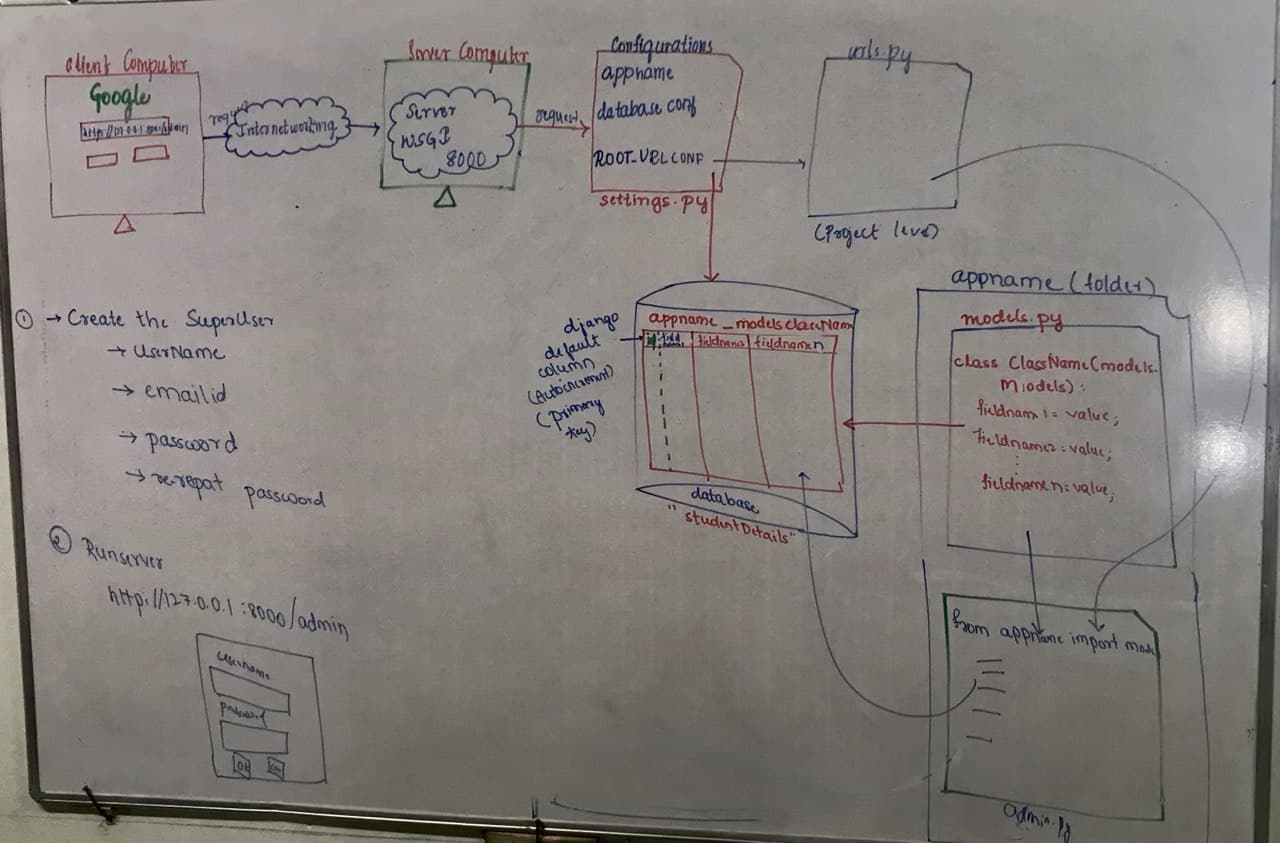 Client Computer
Google
http://127.0.0.1:8000/admin
Internetworking
Server Computer
Server
WSGI
8000
request
Configurations
appname
database conf
ROOT_URLCONF
settings.py
urls.py
(Project level)
① → Create the SuperUser
→ UserName
→ emailid
→ password
→ re-repat password
② Runserver
http://127.0.0.1:8000/admin
username
password
OK
django
default
column
(Autoincrement)
(primary
key)
appname_modelsclassName
fieldname
fieldnamen
database
"studentDetails"
appname (folder)
models.py
class ClassName(models.
Models):
fieldname1 = value;
fieldname2 = value;
fieldnamen = value;
from appname import
admin.py